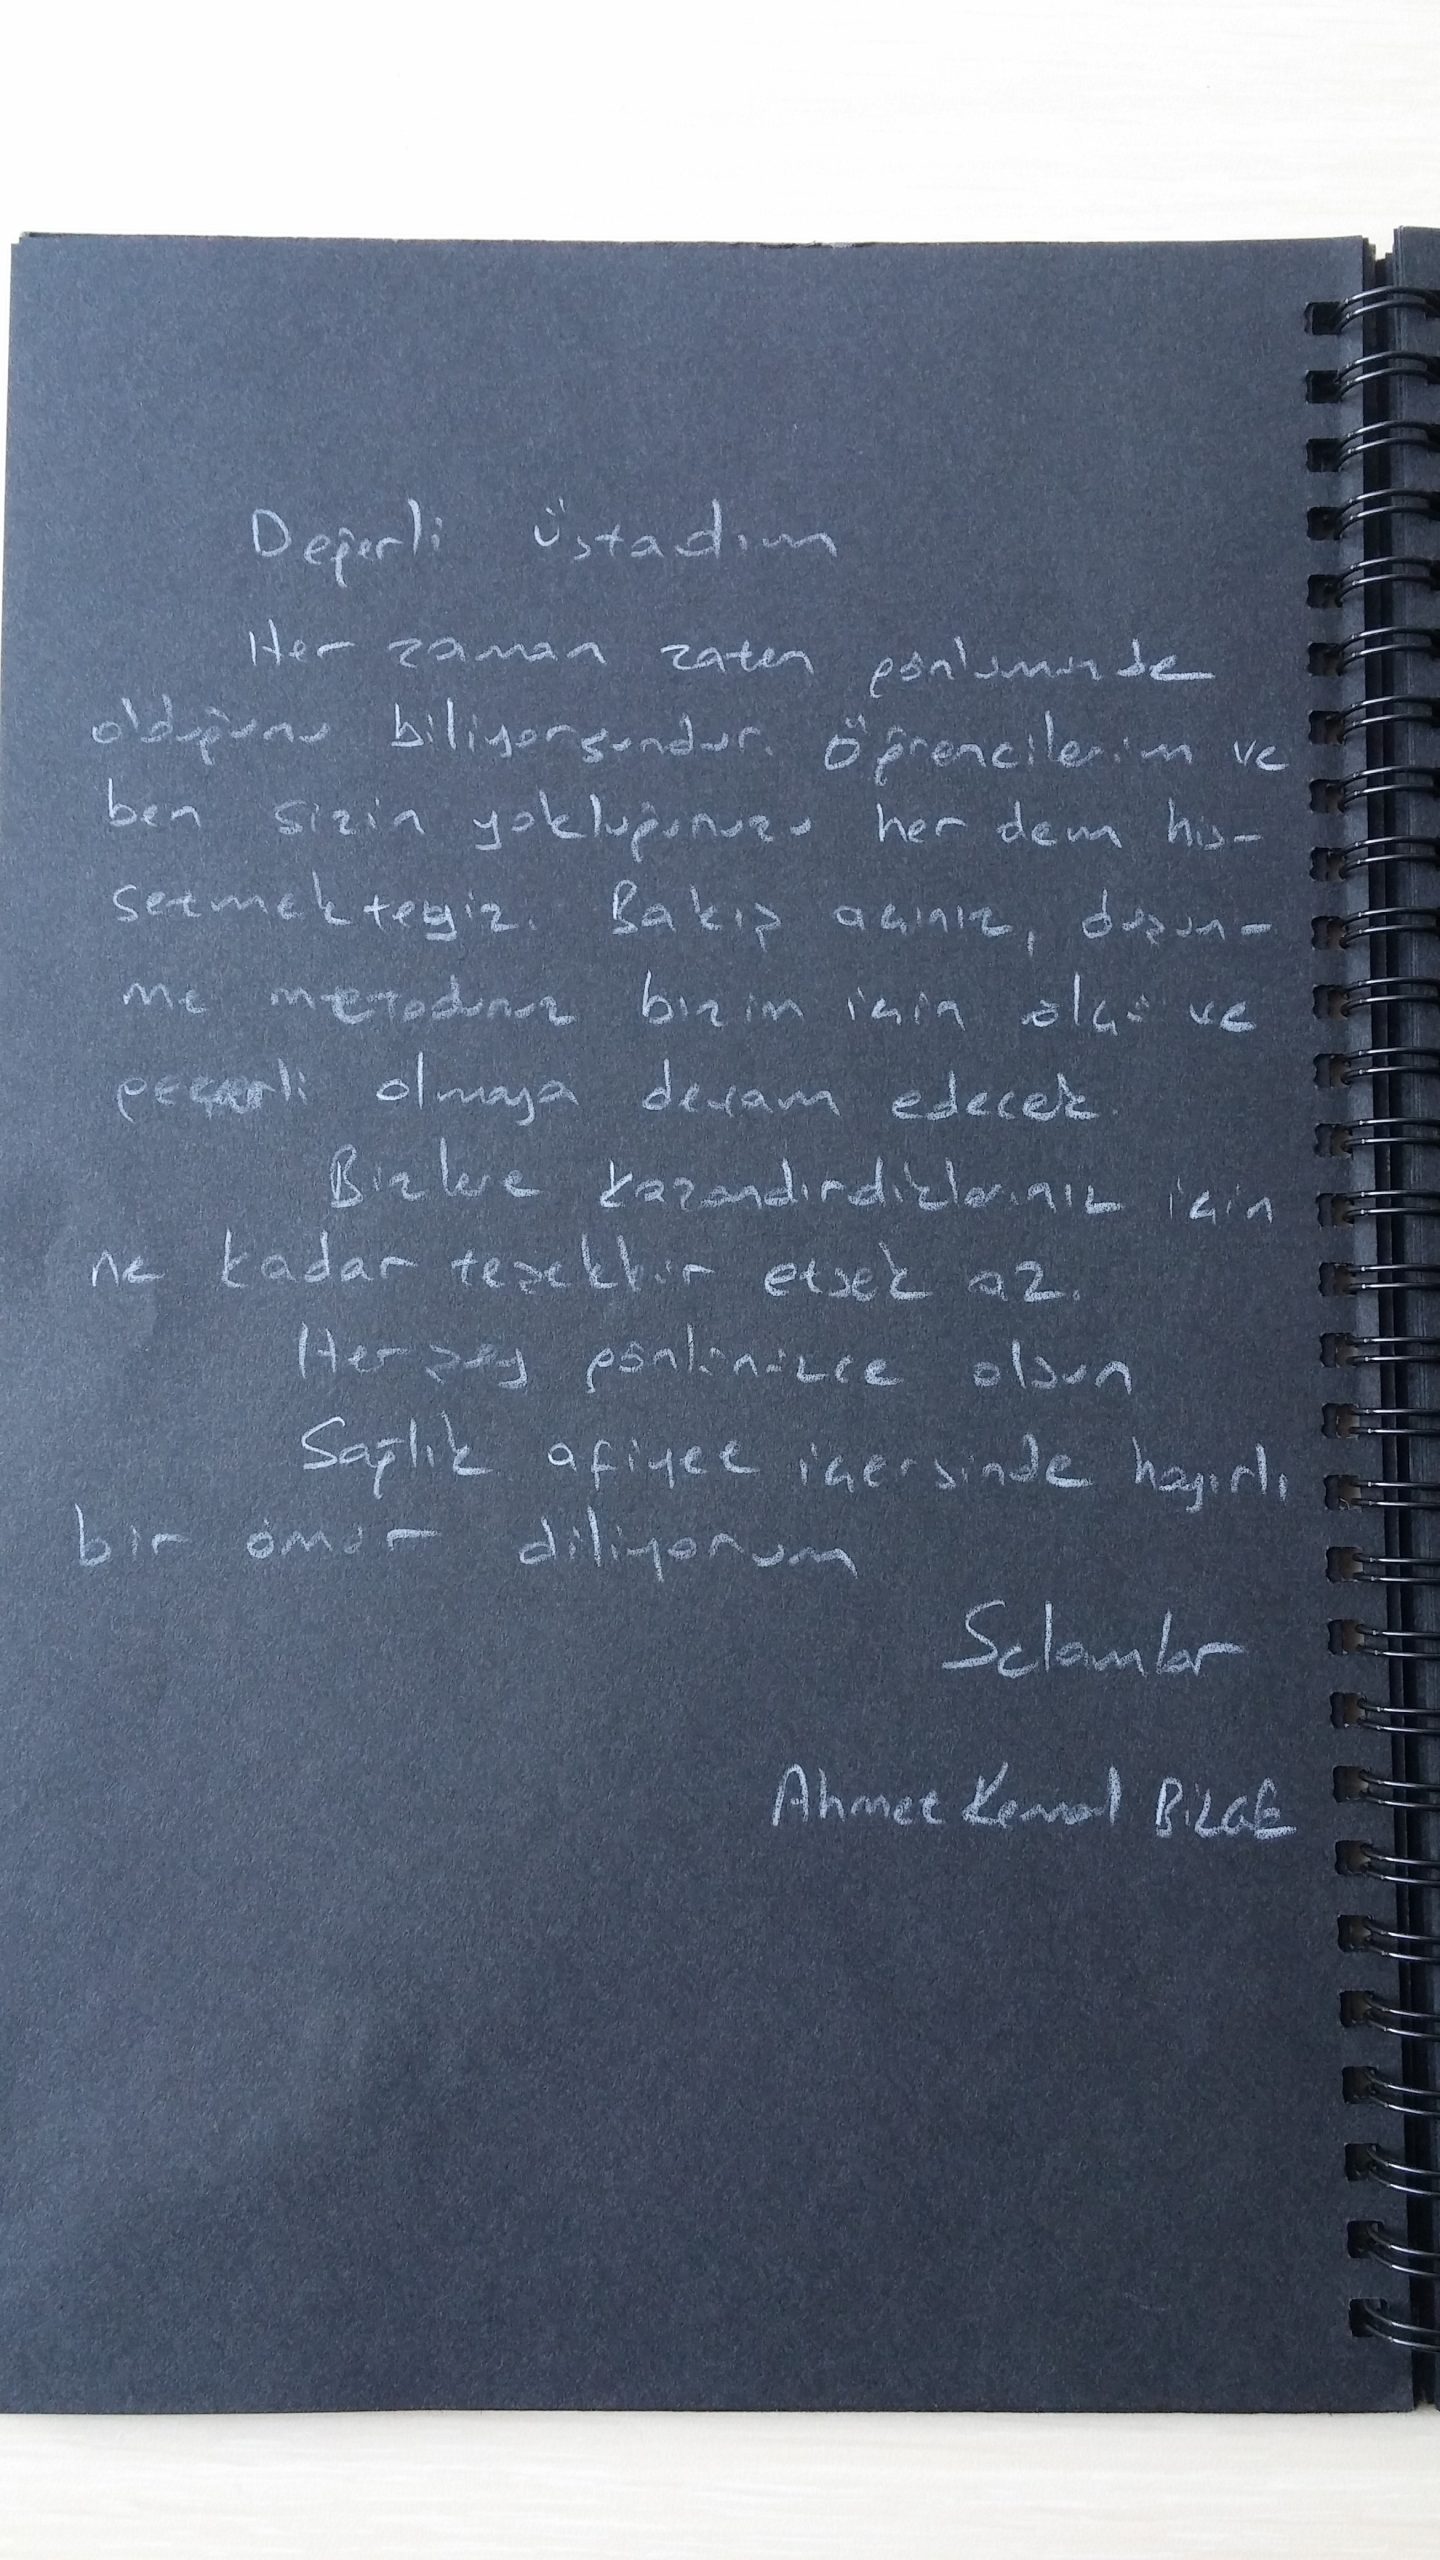 Değerli üstadım
Her zaman zaten gönlümünde
olduğunu biliyorsundur. Öğrencilerim ve
ben sizin yokluğunuzu her dem his-
setmekteyiz. Bakış açınız, düşün-
me metodunuz bizim için ölçü ve
geçerli olmaya devam edecek.
Bizlere kazandırdıklarınız için
ne kadar teşekkür etsek az.
Herşey gönlünüzce olsun
Sağlık afiyet içersinde hayırlı
bir ömür diliyorum
Selamlar
Ahmet Kemal BİLGE